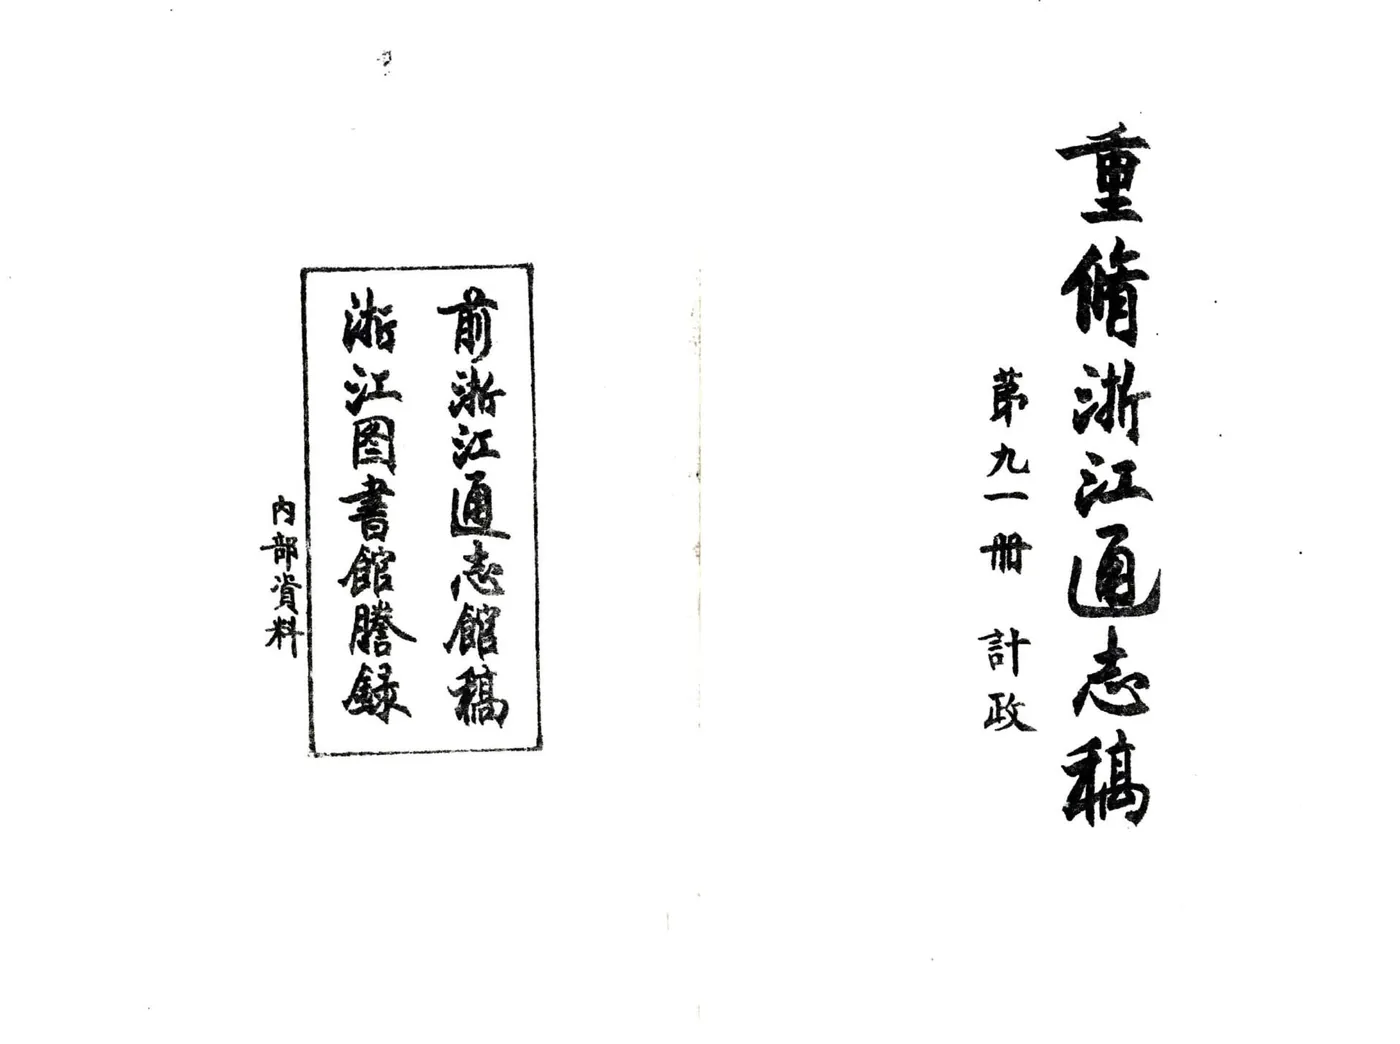 重脩浙江通志稿
第九一册 計政
前浙江通志館稿
浙江图書館謄録
内部資料